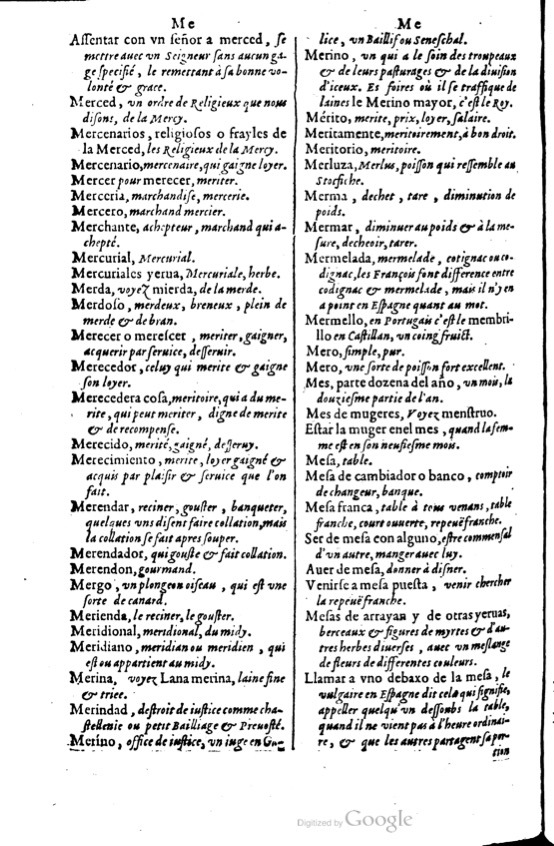 Me
Aſſentar con vn ſeñor a merced, ſe
mettre auec vn Seigneur ſans aucun ga-
ge ſpecifié, le remettant à ſa bonne vo-
lonté & grace.
Merced, un ordre de Religieux que nous
diſons, de la Mercy.
Mercenarios, religioſos o frayles de
la Merced, les Religieux de la Mercy.
Mercenario, mercenaire, qui gaigne loyer.
Mercer pour merecer, meriter.
Merceria, marchandiſe, mercerie.
Mercero, marchand mercier.
Merchante, achepteur, marchand qui a-
chepté.
Mercurial, Mercurial.
Mercuriales yerua, Mercuriale, herbe.
Merda, voyez mierda, de la merde.
Merdoſo, merdeux, breneux, plein de
merde & de bran.
Merecer o mereſcer, meriter, gaigner,
acquerir par ſeruice, deſſeruir.
Merecedor, celuy qui merite & gaigne
ſon loyer.
Merecedera coſa, meritoire, qui a du me-
rite, qui peut meriter, digne de merite
& de recompenſe.
Merecido, merité, gaigné, deſſeruy.
Merecimiento, merite, loyer gaigné &
acquis par plaiſir & ſeruice que l'on
fait.
Merendar, reciner, gouſter, banqueter,
quelques vns diſent faire collation, mais
la collation ſe fait apres ſouper.
Merendador, qui gouſte & fait collation.
Merendon, gourmand.
Mergo, vn plongeon oiſeau, qui eſt vne
ſorte de canard.
Merienda, le reciner, le gouſter.
Meridional, meridional, du midy.
Meridiano, meridian ou meridien, qui
eſt ou appartient au midy.
Merina, voyez Lana merina, laine fine
& triee.
Merindad, deſtroit de iuſtice comme cha-
ſtellenie ou petit Bailliage & Preuoſté.
Merino, office de iuſtice, vn iuge en
Me
lice, vn Baillif ou Seneſchal.
Merino, vn qui a le ſoin des troupeaux
& de leurs paſturages & de la diuiſion
d'iceux. Es foires où il ſe traffique de
laines le Merino mayor, c'eſt le Roy.
Mérito, merite, prix, loyer, ſalaire.
Meritamente, meritoirement, à bon droit.
Meritorio, meritoire.
Merluza, Merlus, poiſſon qui reſſemble au
Stocfiche.
Merma, dechet, tare, diminution de
poids.
Mermar, diminuer au poids & à la me-
ſure, decheoir, tarer.
Mermelada, mermelade, cotignac ou co-
dignac, les François font difference entre
codignac & mermelade, mais il n'y en
a point en Eſpagne quant au mot.
Mermello, en Portugais c'eſt le membri-
llo en Caſtillan, vn coing fruict.
Mero, ſimple, pur.
Mero, vne ſorte de poiſſon fort excellent.
Mes, parte dozena del año, vn mois, la
douzieſme partie de l'an.
Mes de mugeres, Voyez menſtruo.
Eſtar la muger en el mes, quand la fem-
me eſt en ſon neufieſme mois.
Meſa, table.
Meſa de cambiador o banco, comptoir
de changeur, banque.
Meſa franca, table à tous venans, table
franche, court ouuerte, repeuë franche.
Ser de meſa con alguno, eſtre commenſal
d'vn autre, manger auec luy.
Auer de meſa, donner à diſner.
Venirſe a meſa pueſta, venir chercher
la repeuë franche.
Meſas de arrayan y de otras yeruas,
berceaux & figures de myrtes & d'au-
tres herbes diuerſes, auec vn meſlange
de fleurs de differentes couleurs.
Llamar a vno debaxo de la meſa, le
vulgaire en Eſpagne dit cela qui ſignifie,
appeller quelqu'vn deſſoubs la table,
quand il ne vient pas à l'heure ordinai-
re, & que les autres partagent ſa por-
tion
Digitized by Google